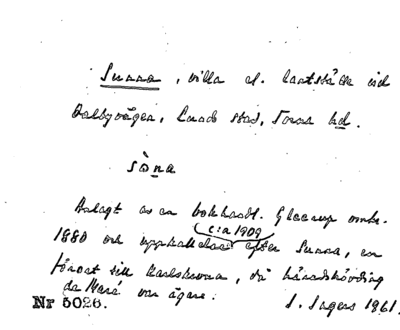 Sunna, villa el. lantställe vid
Dalbyvägen, Lunds stad, Torna hd.
sòna
Anlagt av en bokhandl. Gleerup omkr.
c:a 1909
1880 och uppkallades efter Sunna, en
förort till Karlskrona, då häradshövding
de Maré var ägare.
Nr 5026.
I. Ingers 1961.